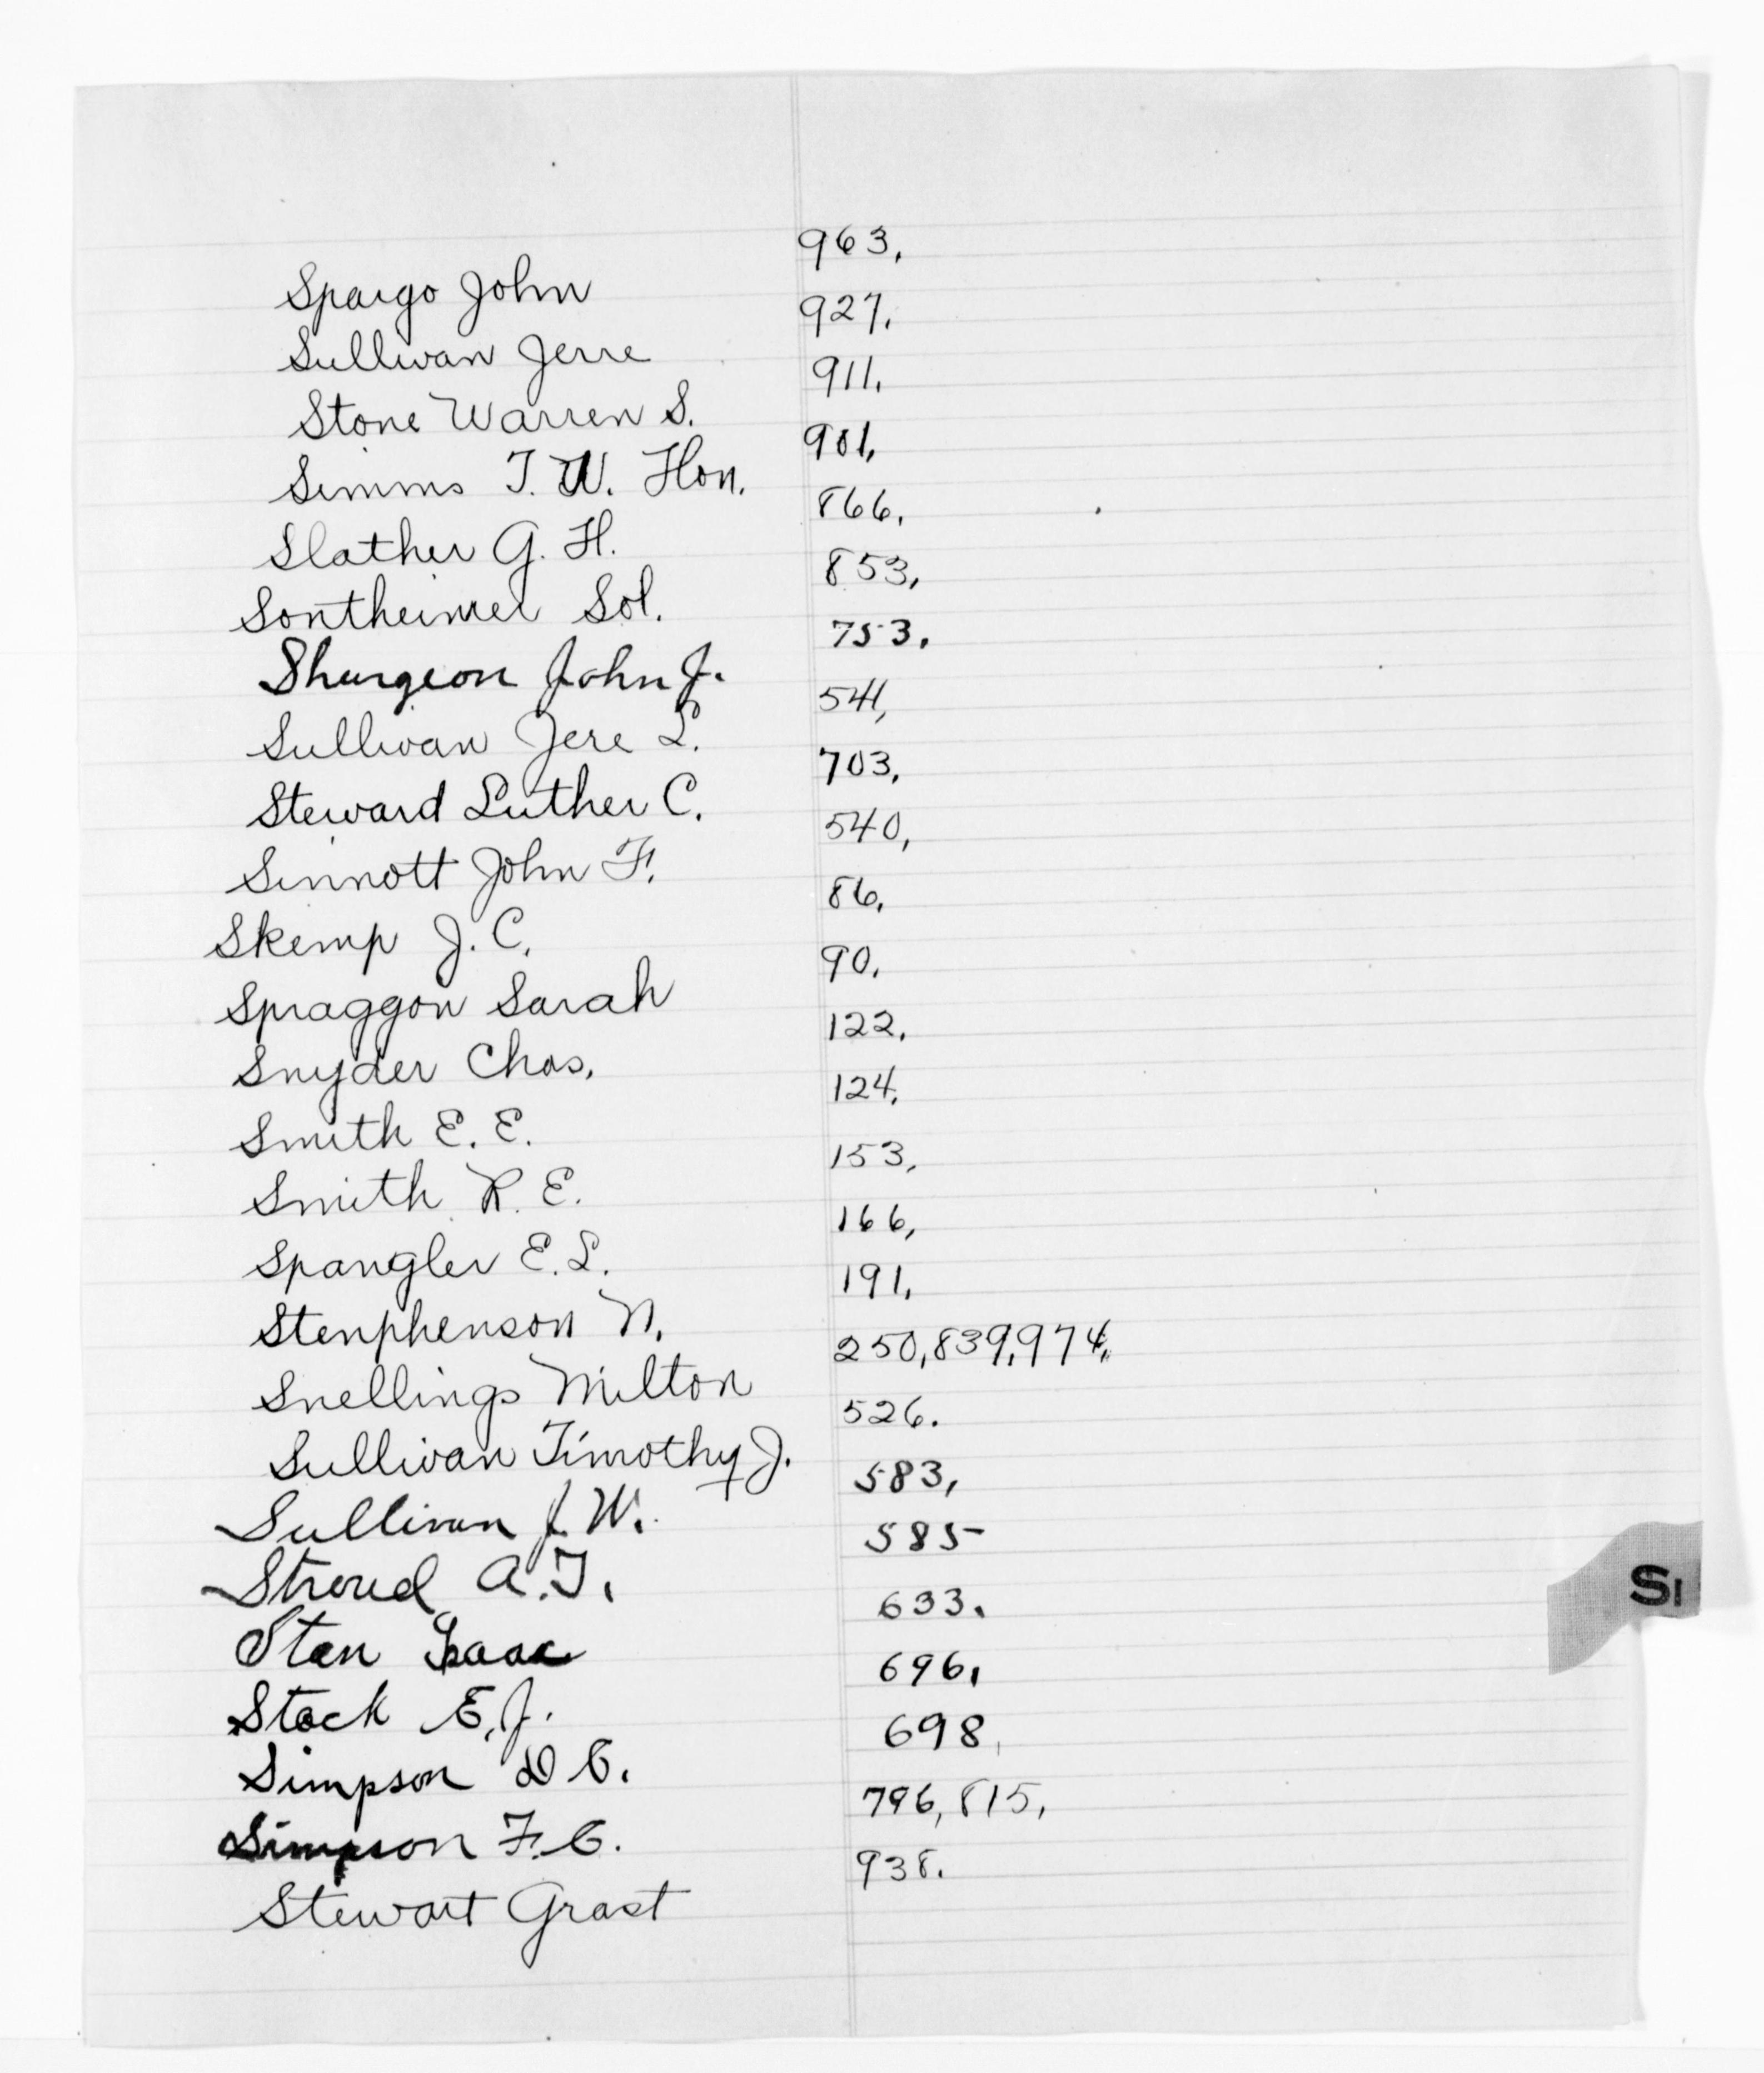 Spargo John 963,
Sullivan Jerre 927,
Stone Warren S. 911,
Simms T. W. Hon. 901,
Slather G. H. 866,
Sontheimer Sol. 853,
Shurgeon John J. 753,
Sullivan Jere L. 541,
Steward Luther C. 703,
Sinnott John F. 540,
Skemp J. C. 86,
Spraggon Sarah 90,
Snyder Chas, 122,
Smith E. E. 124,
Smith R. E. 153,
Spangler E. L. 166,
Stenphenson N. 191,
Snellings Milton 250,839,974,
Sullivan Timothy J. 526.
Sullivan J. W. 583,
Stroud A. T. 585
Sten Isaac 633,
Stock E. J. 696,
Simpson D C. 698,
Simpson F. C. 796, 815,
Stewart Grast 938.
S